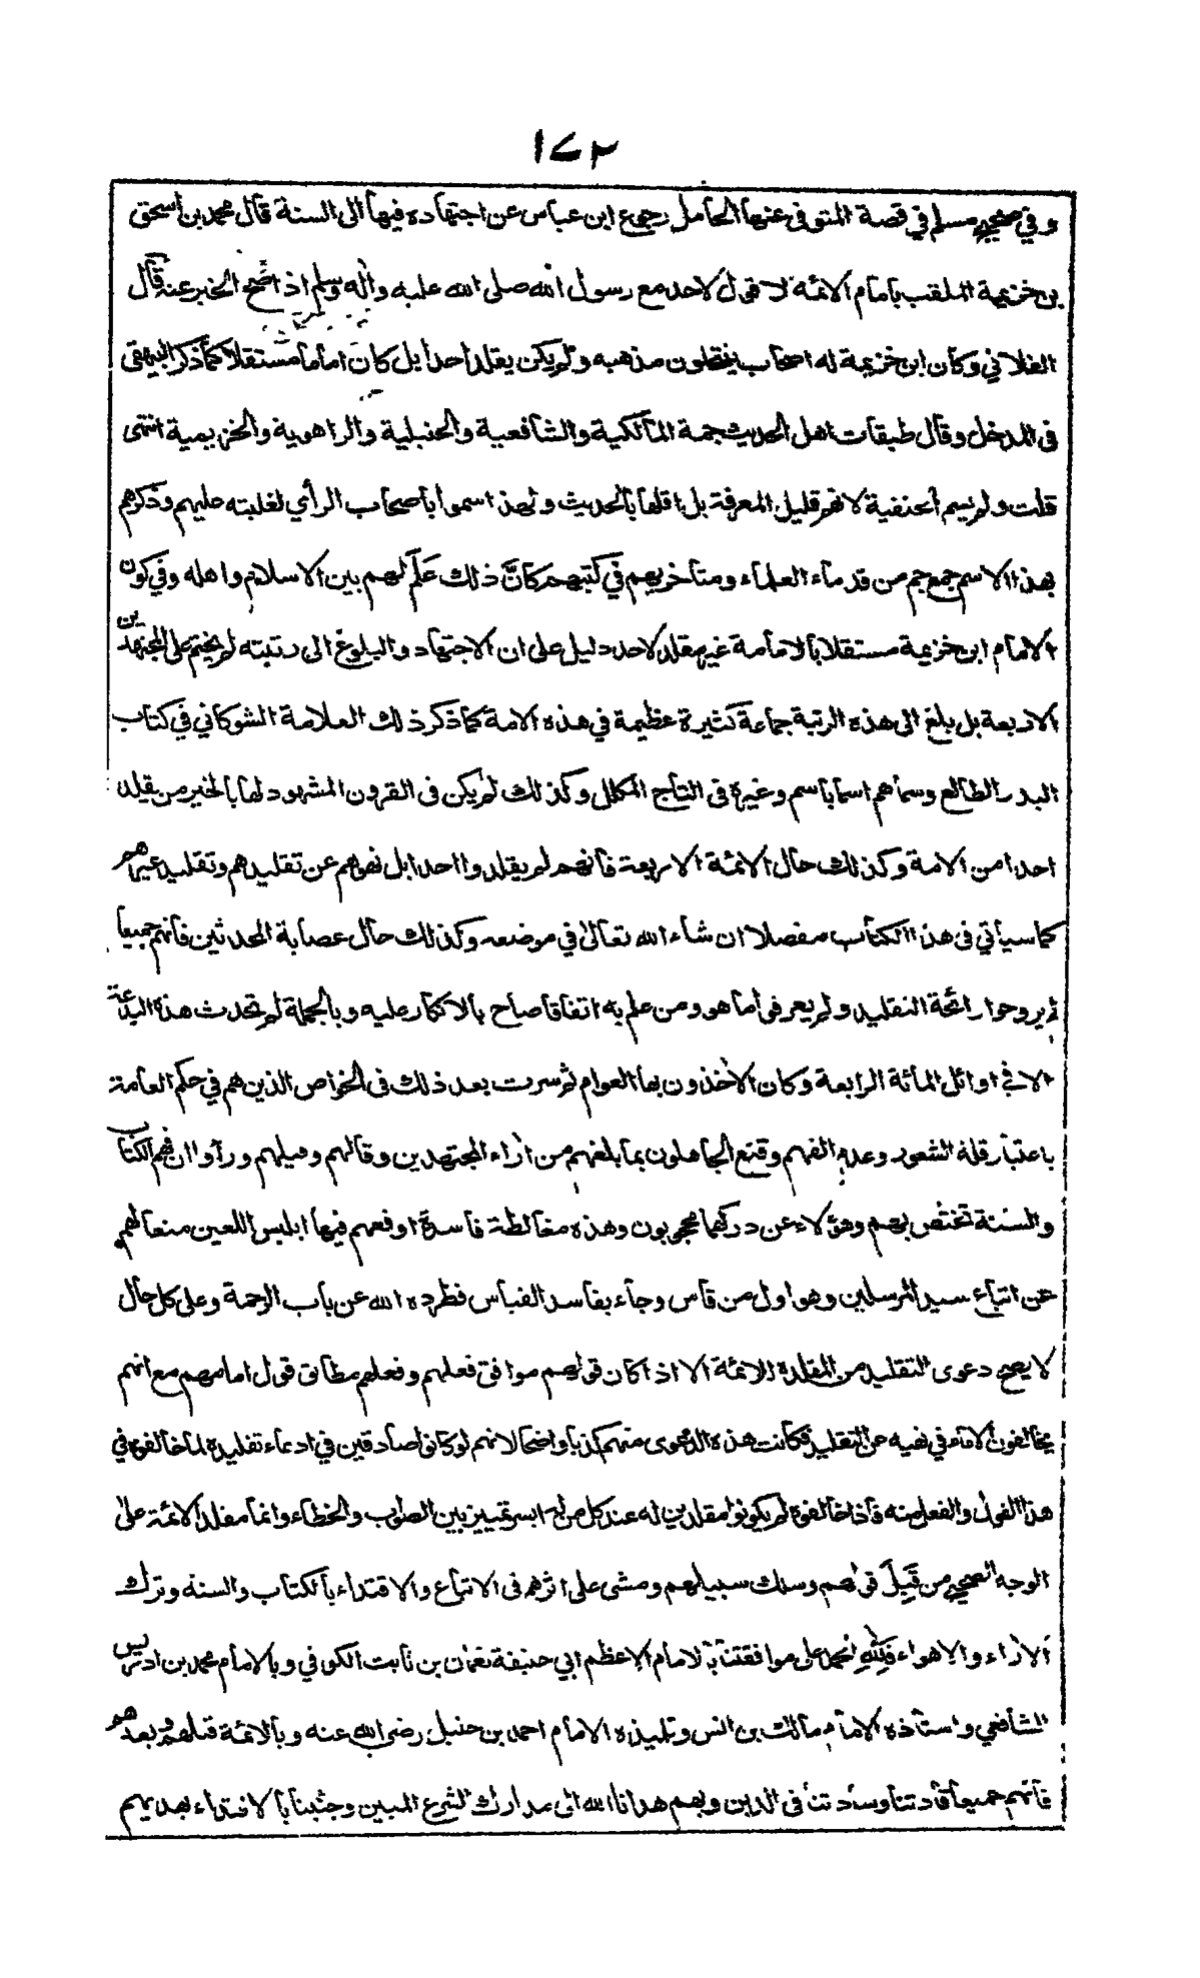 ١٧٢
وفي صحيح مسلم في قصة المتوفى عنها الحامل رجوع ابن عباس عن اجتهاده فيها الى السنة قال محمد بن اسحق
بن خزيمة الملقب بامام الائمة لا قول لاحد مع رسول الله صلى الله عليه واله وسلم اذا صح الخبر عنه قال
الفلاني وكان ابن خزيمة له اصحاب ينتحلون مذهبه ولم يكن يقلد احدا بل كان اماما مستقلا كما ذكر البيهقي
في المدخل وقال طبقات اهل الحديث خمسة المالكية والشافعية والحنبلية والراهوية والخزيمية انتهى
قلت ولم يسم الحنفية لانهم قليل المعرفة بل اقلها بالحديث ولهذا سموا باصحاب الرأي لغلبته عليهم وذكرهم
بهذا الاسم جمع جم من قدماء العلماء ومتأخريهم في كتبهم كأنَّ ذلك عَلَم لهم بين الاسلام واهله وفي كون
الامام ابن خزيمة مستقلا بالامامة غير مقلد لاحد دليل على ان الاجتهاد والبلوغ الى رتبته لم يختم على المجتهدين
الاربعة بل بلغ الى هذه الرتبة جماعة كثيرة عظيمة في هذه الامة كما ذكر ذلك العلامة الشوكاني في كتاب
البدر الطالع وسماهم اسما باسم وغيره في التاج المكلل وكذلك لم يكن في القرون المشهود لها بالخير من يقلد
احدا من الامة وكذلك حال الائمة الاربعة فانهم لم يقلدوا احدا بل نهوهم عن تقليدهم وتقليد غيرهم
كما سيأتي في هذا الكتاب مفصلا ان شاء الله تعالى في موضعه وكذلك حال عصابة المحدثين فانهم جميعا
لم يروحوا رائحة التقليد ولم يعرفوا ما هو ومن علم به اتفاقا صاح بالانكار عليه وبالجملة لم تحدث هذه البدعة
الا في اوائل المائة الرابعة وكان الاخذون بها العوام ثم سرت بعد ذلك في الخواص الذين هم في حكم العامة
باعتبار قلة الشعور وعدم الفهم وقنع الجاهلون بما بلغهم من اراء المجتهدين وقالهم وقيلهم ورأوا ان فهم الكتاب
والسنة تختص بهم وهؤلاء عن دركهما محجوبون وهذه مغالطة فاسدة اوقعهم فيها ابليس اللعين منعا لهم
عن اتباع سيد المرسلين وهو اول من قاس وجاء بفاسد القياس فطرده الله عن باب الرحمة وعلى كل حال
لا يصح دعوى التقليد من المقلدة للائمة الا اذا كان قولهم موافق فعلهم وفعلهم مطابق قول امامهم مع انهم
يخالفون الامام في نهيه عن التقليد فكانت هذه الدعوى منهم كذبا واضحا لانهم لو كانوا صادقين في ادعاء تقليده لما خالفوه في
هذا القول والفعل منه فاذا خالفوه لم يكونوا مقلدين له عند كل من له ايسر تمييز بين الصواب والخطاء وانما مقلد الائمة على
الوجه الصحيح من قَبِلَ قولهم وسلك سبيلهم ومشى على اثرهم في الاتباع والاقتداء بالكتاب والسنة وترك
الاراء والاهواء فَلِلّٰهِ الحمد على موافقتنا بالامام الاعظم ابي حنيفة نعمان بن ثابت الكوفي وبالامام محمد بن ادريس
الشافعي واستاذه الامام مالك بن انس وتلميذه الامام احمد بن حنبل رضي الله عنه وبالائمة قبلهم وبعدهم
فانهم جميعا قادتنا وسادتنا في الدين وبهم هدانا الله الى مدارك الشرع المبين وجنبنا بالاقتداء بهديهم